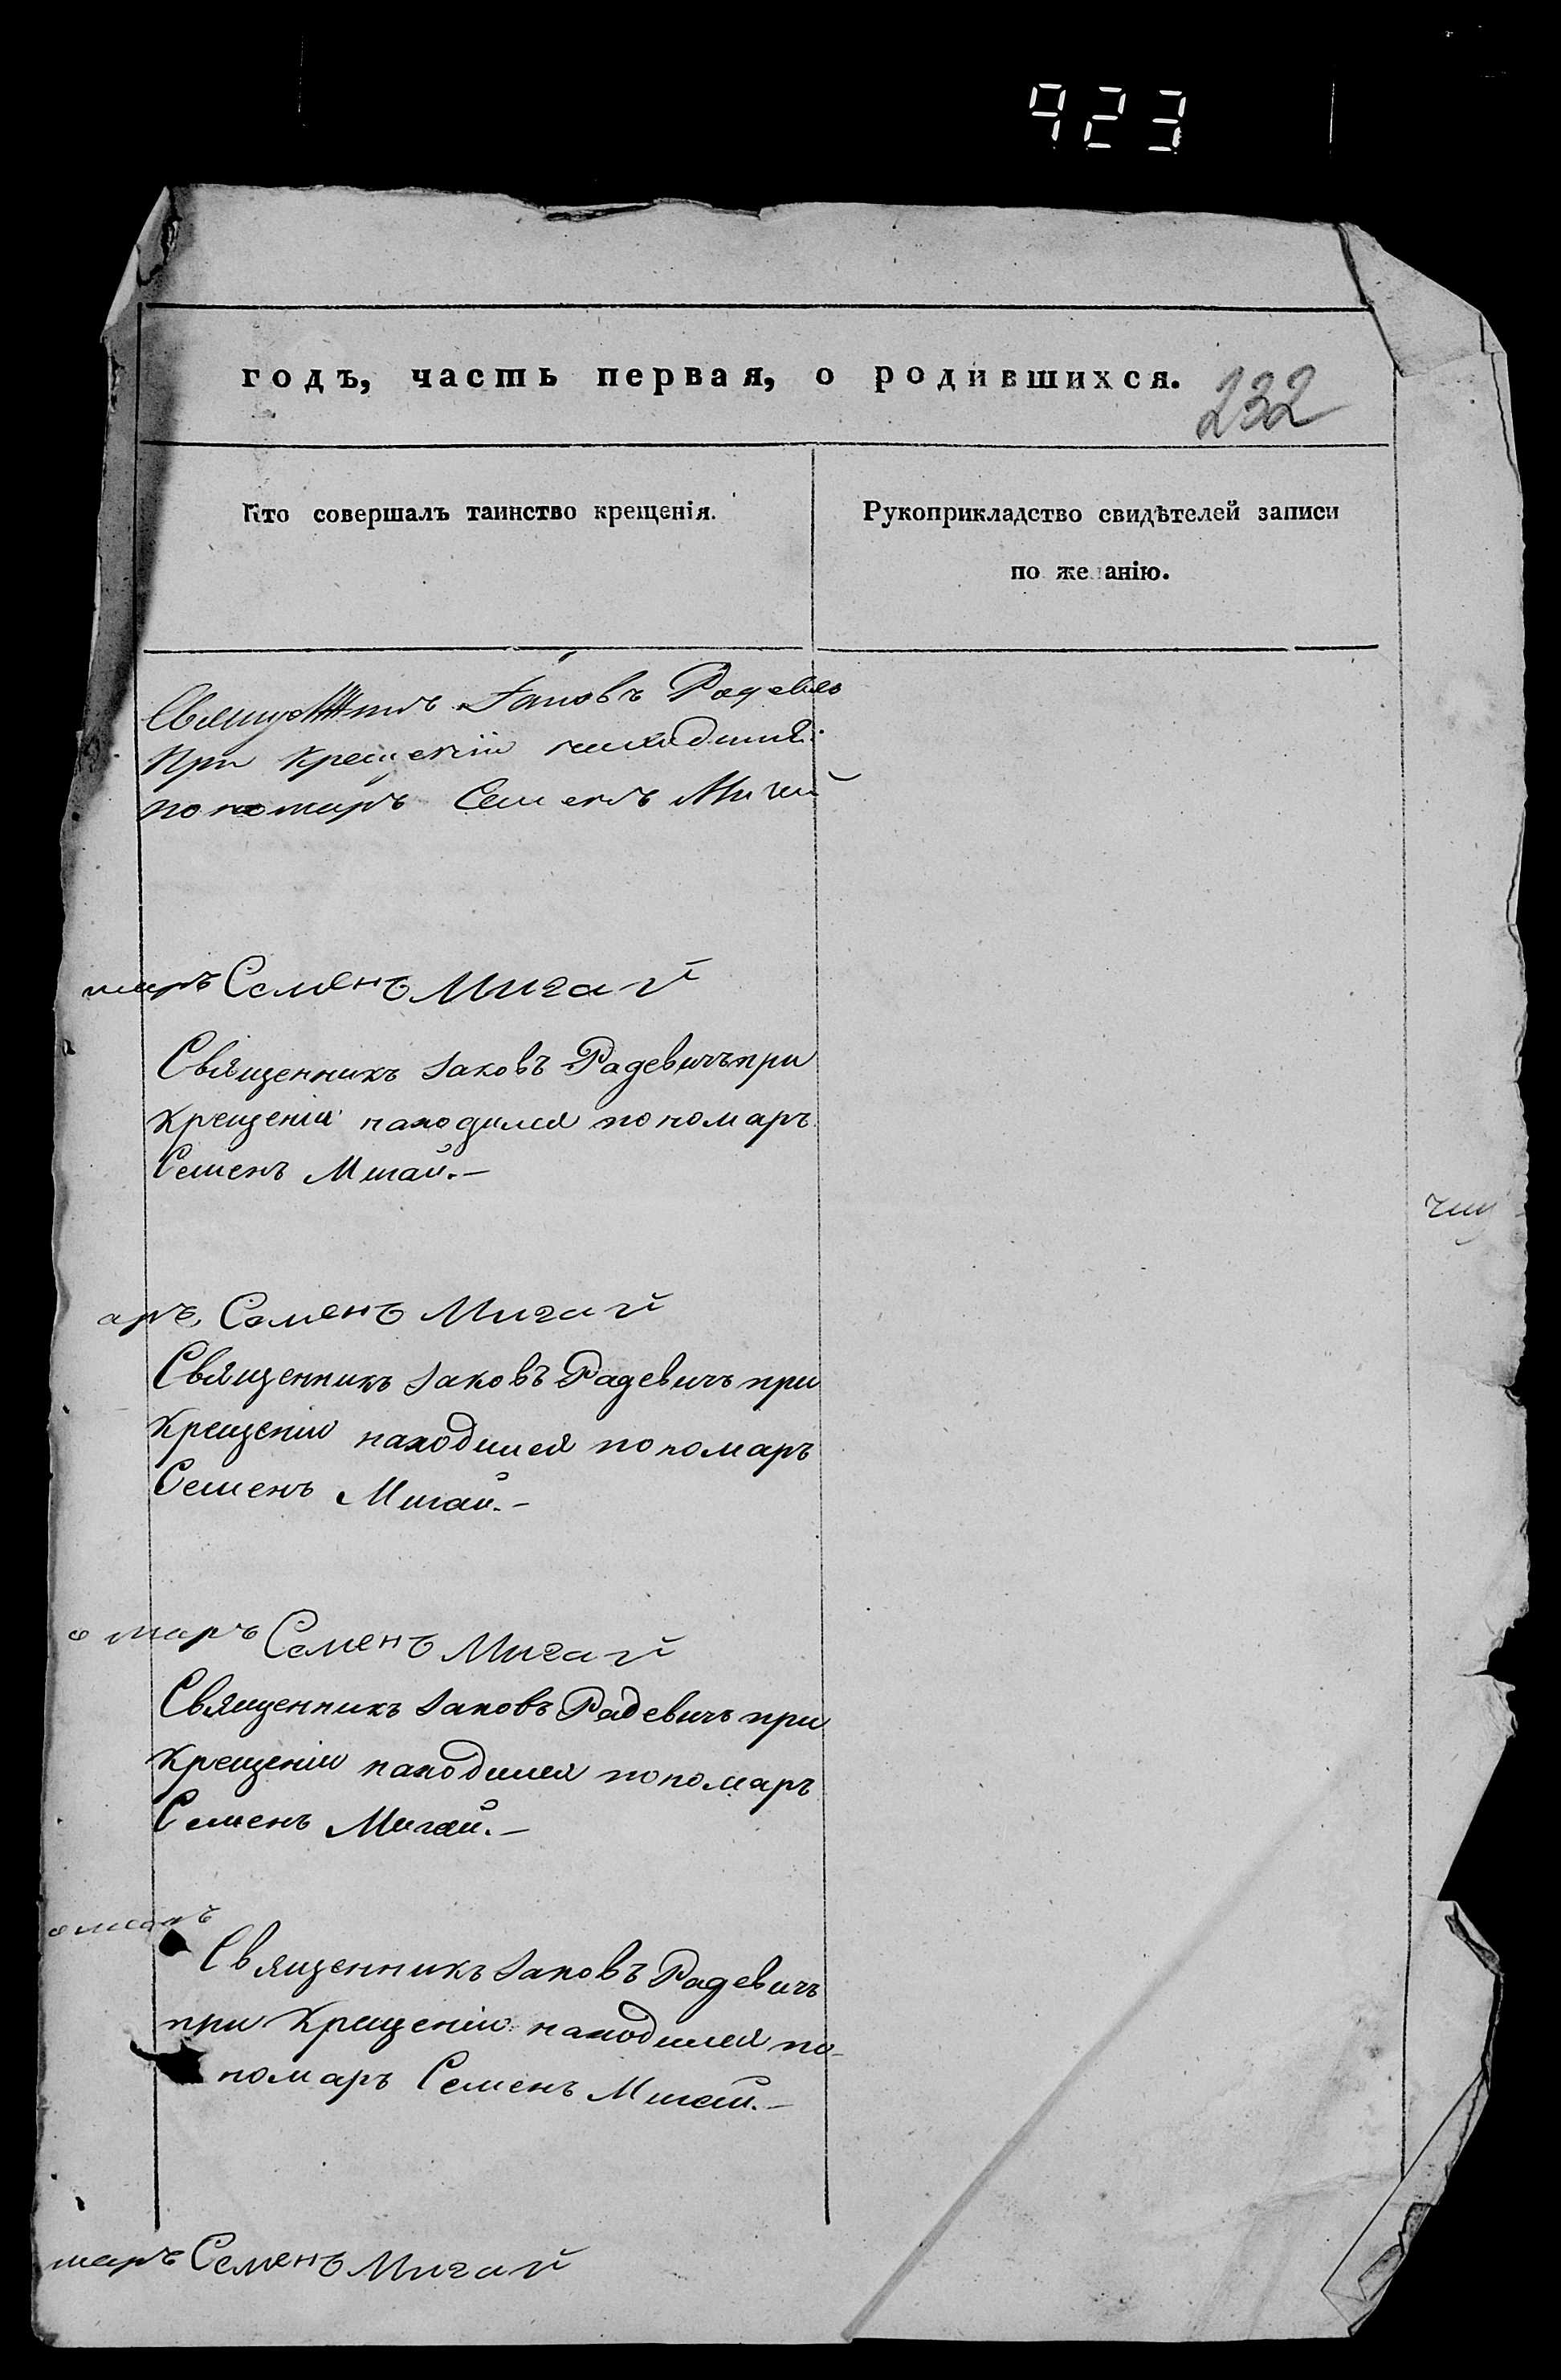 923
годъ, часть первая, о родившихся.
232
Кто совершалъ таинство крещенія.
Рукоприкладство свидѣтелей записи
по желанію.
Іаковъ Радевичъ
при крещеніи находился
пономаръ Семенъ Мигай
маръ Семенъ Мигай
Священникъ Іаковъ Радевичъ при
крещеніи находился пономаръ
Семенъ Мигай.—
аръ Семенъ Мигай
Священникъ Іаковъ Радевичъ при
крещеніи находился пономаръ
Семенъ Мигай.—
омаръ Семенъ Мигай
Священникъ Іаковъ Радевичъ при
крещеніи находился пономаръ
Семенъ Мигай.—
омаръ
Священникъ Іаковъ Радевичъ
при крещеніи находился по-
номаръ Семенъ Мигай.—
маръ Семенъ Мигай